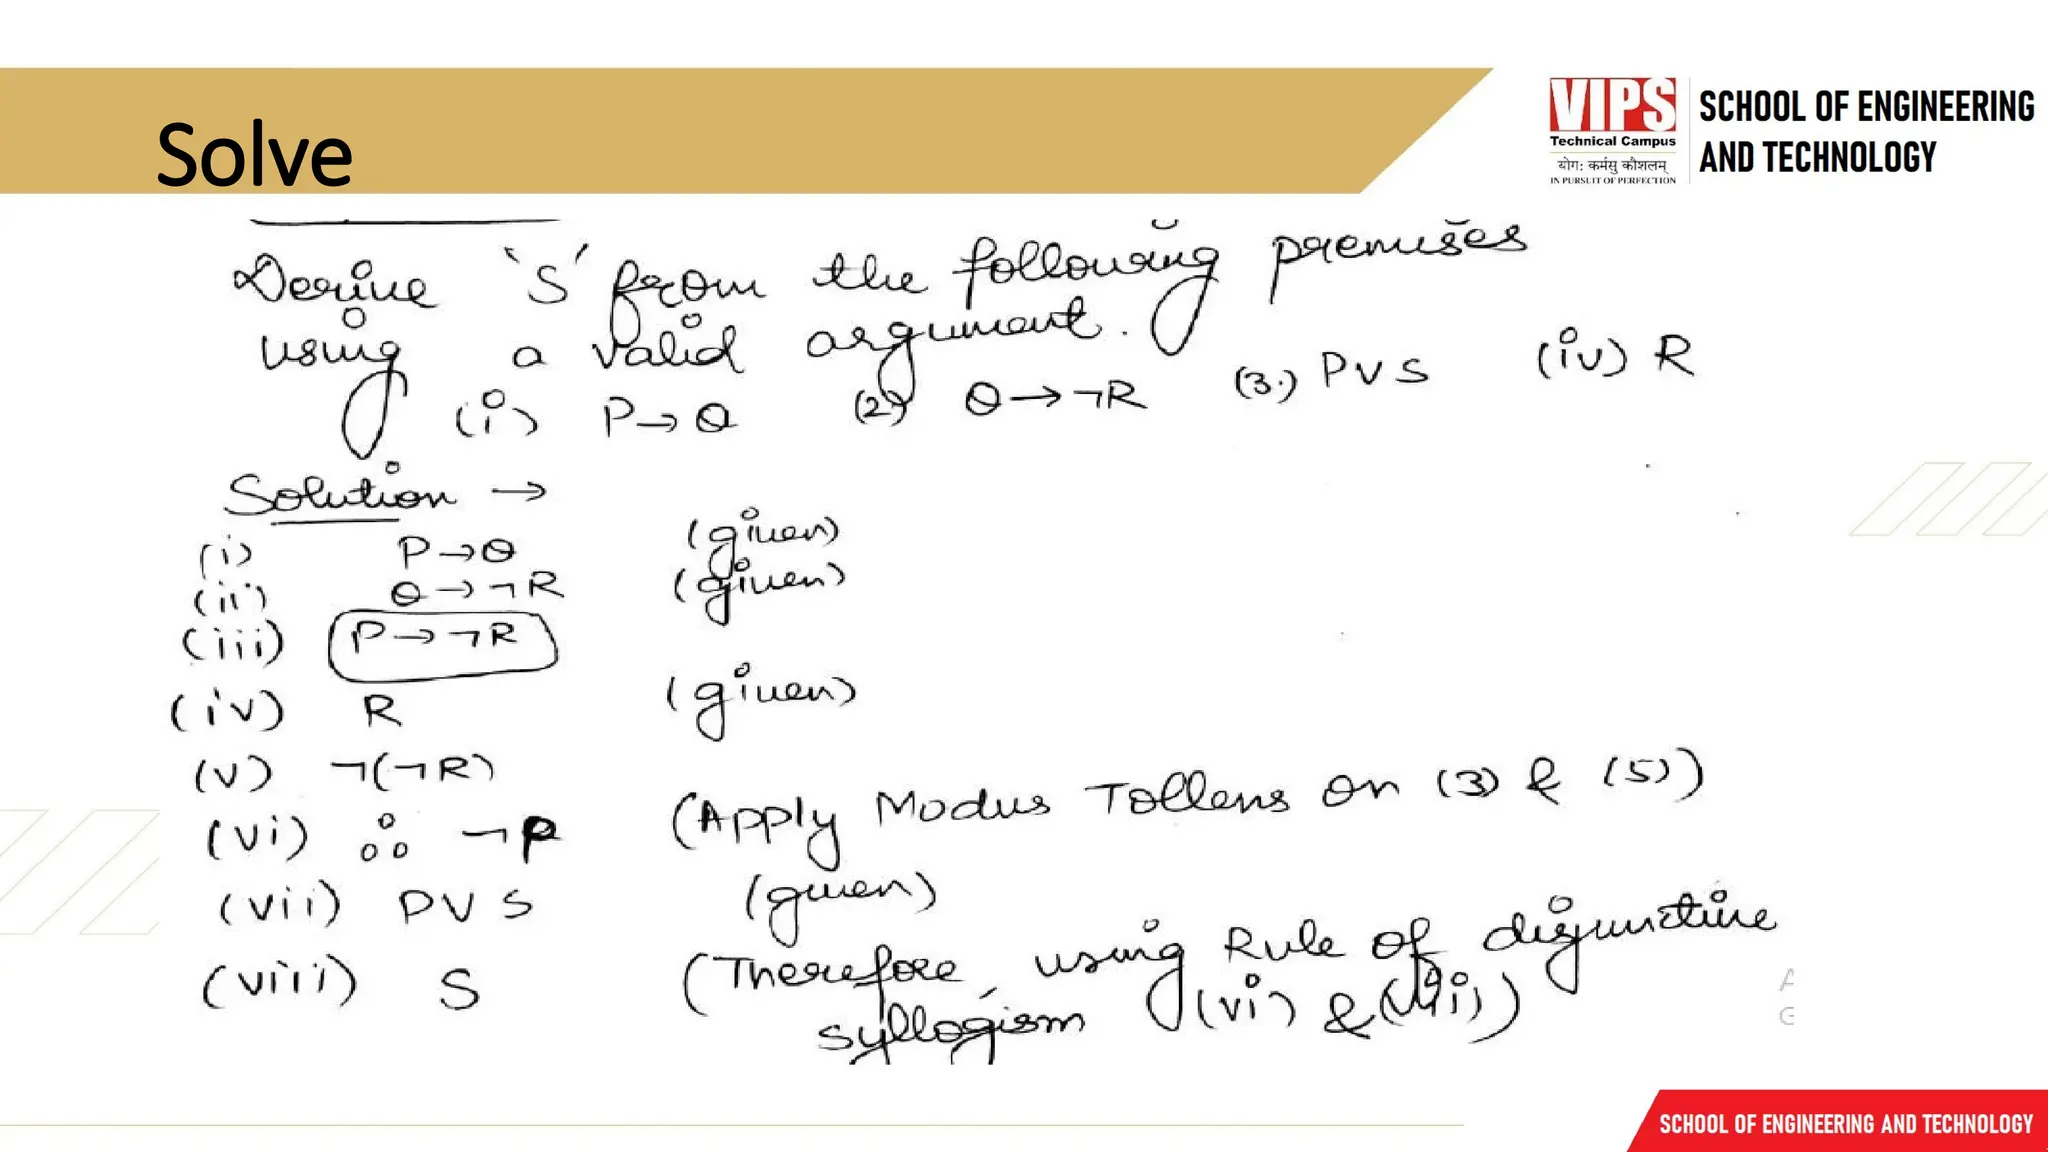 Solve
VIPS
Technical Campus
योगः कर्मसु कौशलम्
IN PURSUIT OF PERFECTION
SCHOOL OF ENGINEERING
AND TECHNOLOGY
Derive 'S' from the following premises
using a valid argument.
(i) P→Q (2) Q→¬R (3.) P∨S (iv) R
Solution →
(i) P→Q (given)
(ii) Q→¬R (given)
(iii) P→¬R
(iv) R (given)
(v) ¬(¬R)
(vi) ∴ ¬P (Apply Modus Tollens on (3) & (5))
(vii) P∨S (given)
(viii) S (Therefore, using Rule of disjunctive
syllogism (vi) & (vii))
A
G
SCHOOL OF ENGINEERING AND TECHNOLOGY